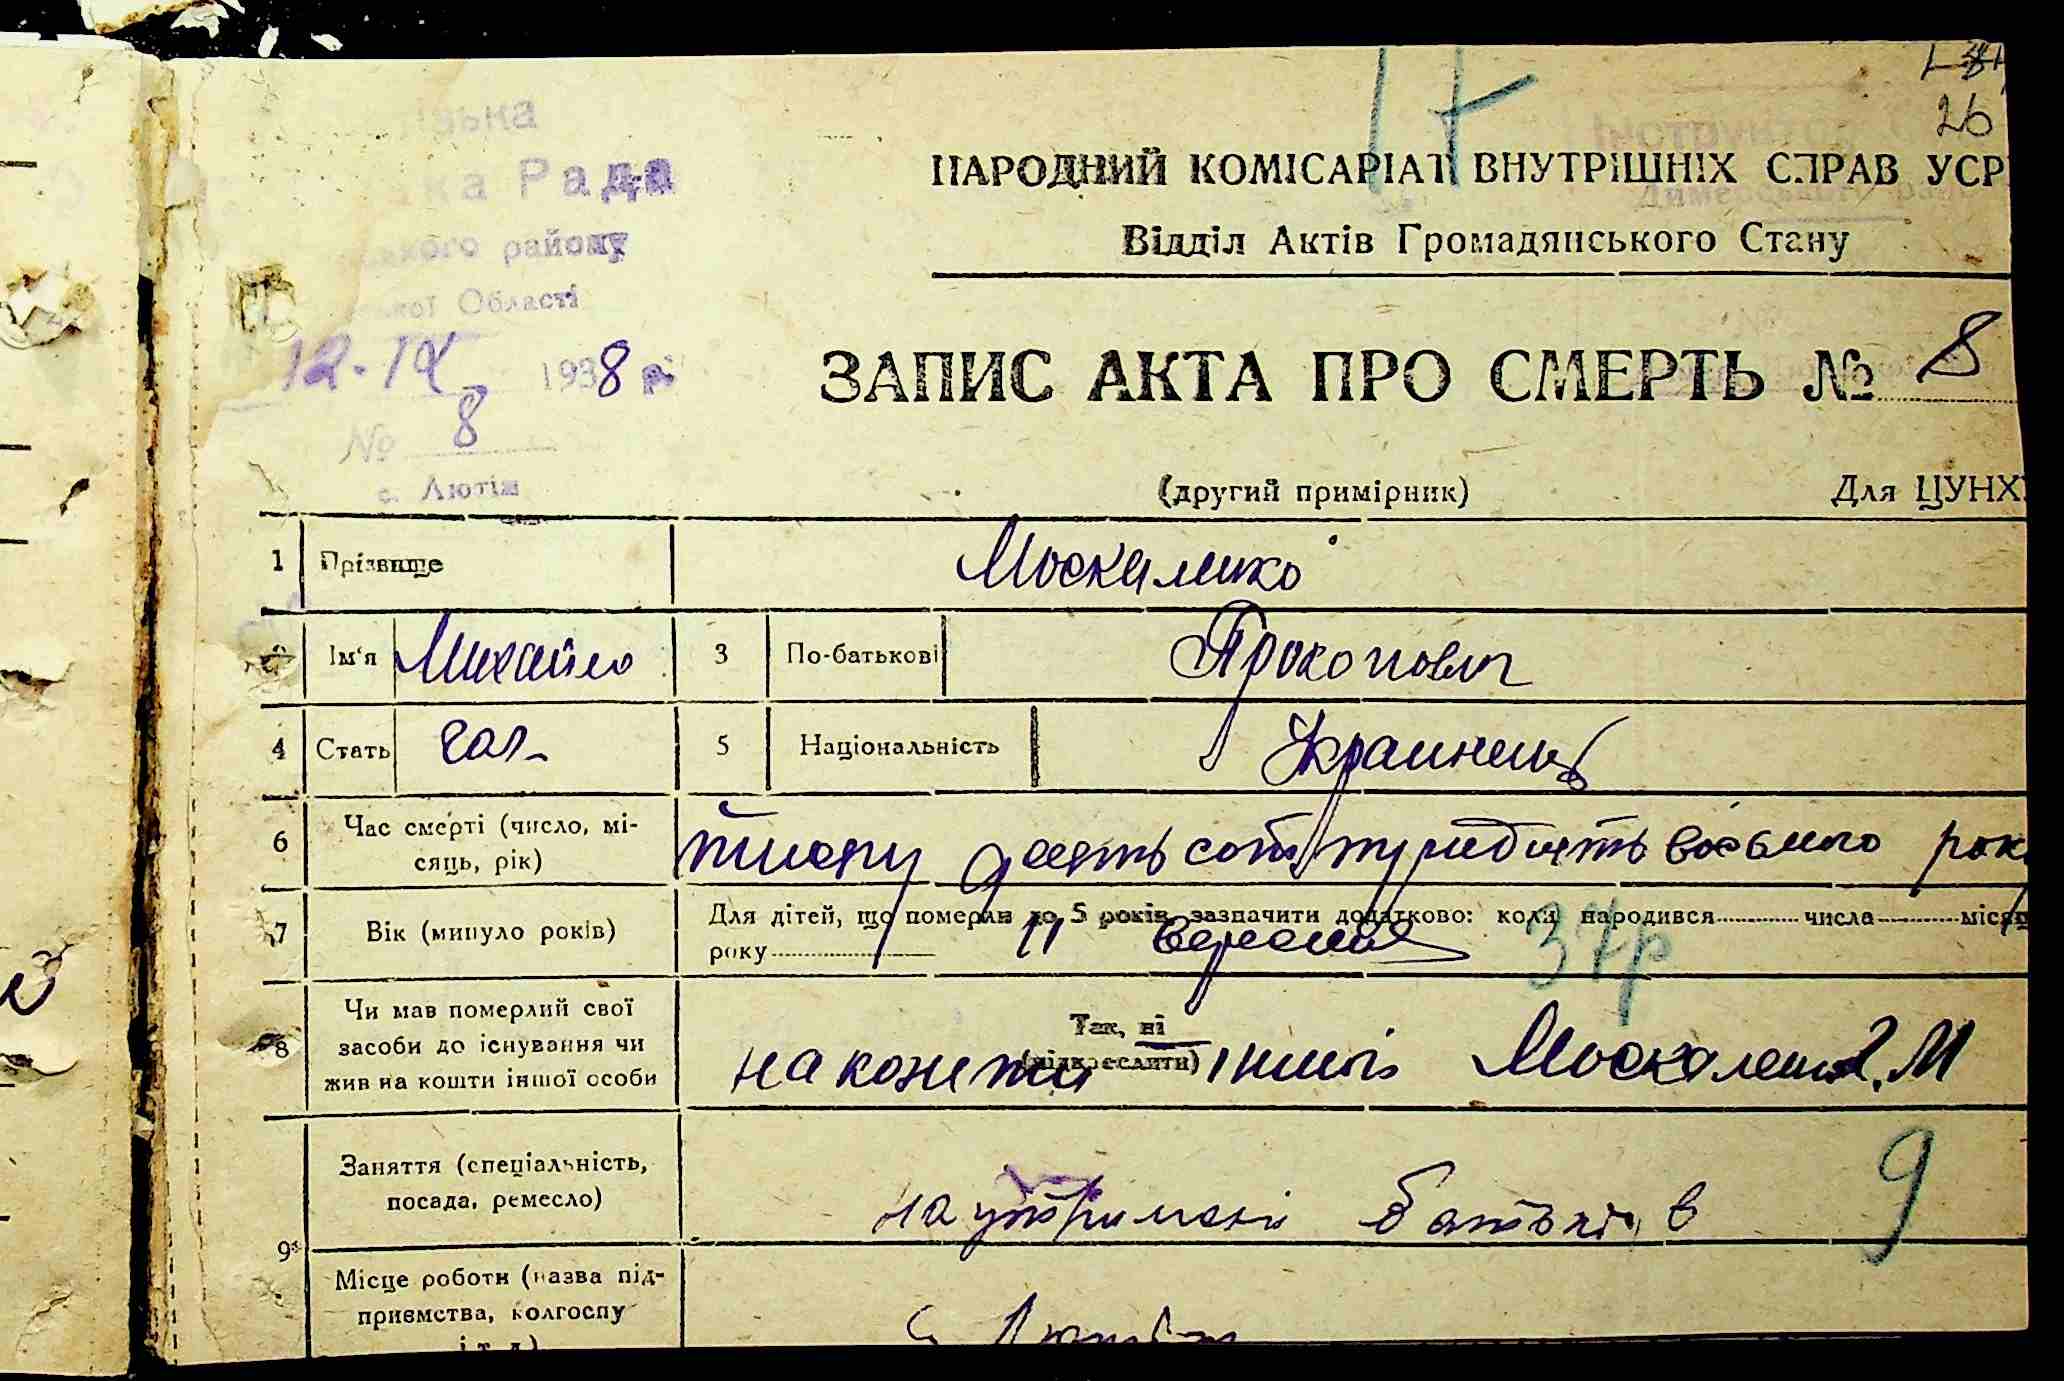 26
ська
ка Рада
ського району
ської Області
12.IX 1938 р.
№ 8
с. Лютіж
17
НАРОДНИЙ КОМІСАРІАТ ВНУТРІШНІХ СПРАВ УСР
Відділ Актів Громадянського Стану
ЗАПИС АКТА ПРО СМЕРТЬ № 8
(другий примірник) Для ЦУНХ
1 Прізвище Москаленко
2 Ім'я Михайло 3 По-батькові Прокопович
4 Стать чол. 5 Національність Украинець
6 Час смерті (число, мі-
сяць, рік) тисячу девять сот тридцять восьмого року
7 Вік (минуло років) Для дітей, що померли до 5 років, зазначити додатково: коли народився числа місяця
року 11 Вересня 37р
8 Чи мав померлий свої
засоби до існування чи
жив на кошти іншої особи
Так, ні
(підкреслити)
на кошти іншої Москаленко М
Заняття (спеціальність,
посада, ремесло) на утримані батьків 9
9 Місце роботи (назва під-
приємства, колгоспу
і т. д.) с. Лютіж